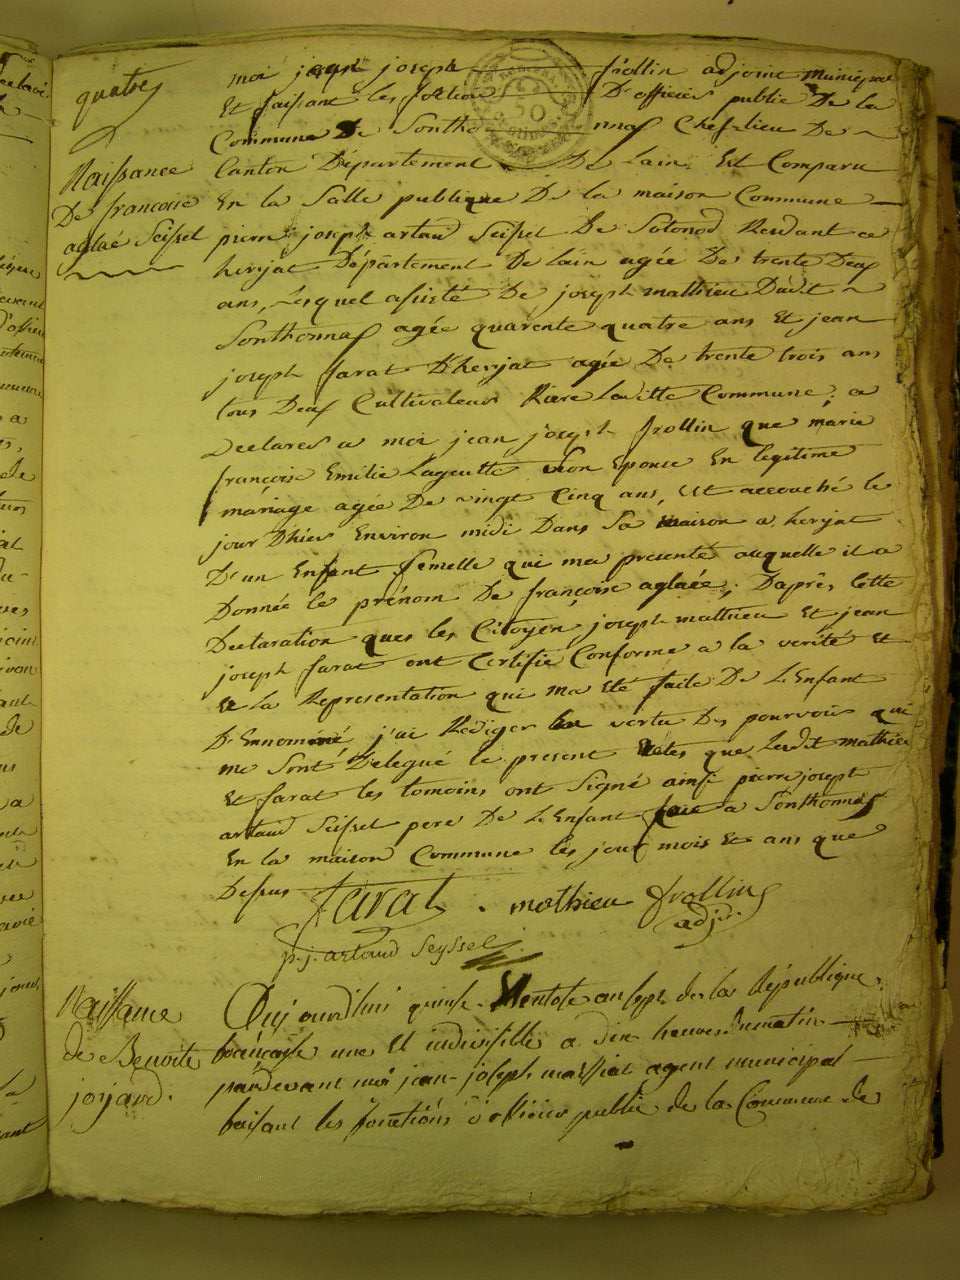 quatres
moi jean joseph frollin adjoint Municipal
Et faissant les foction D'officiés publie De la
Commune De Sonthonnaf Chef-lieu De
Canton Département De Lain Est Comparu
Naissance
De francoise
aglaé Seissel
En la Salle publique De la maison Commune
pierre joseph artaud Seissel De Sotonod Residant a
herijat Département De Lain agée De trente Deux
ans, Lesquel assisté De joseph mathieu Dud.t
Sonthonnaf agée quarente quatre ans Et jean
joseph farat D'herijat agée De trente trois ans
tous Deux Cultivateurs Riere Laditte Commune; a
Declares a moi jean joseph frollin que marie
françoise Emilie Laguette son Epouse En legitime
mariage agée De vingt Cinq ans, Est accouché le
jour D'hier Environ midi Dans Sa maison a herijat
D'un Enfant femelle qui ma presenté auquelle il a
Donnée le prénom De françoise aglaée; Daprês Cette
Declaration ques les Citoyen joseph mathieu Et jean
joseph farat ont Certifié Conforme a la verité Et
Et la Representation qui ma Eté faite De L'Enfant
D'Ennommé j'ai Rédiger En vertu Des pourvois qui
me Sont Délegué le present que Ledit mathieu
Et farat les tomoins ont Signé ainsi pierre joseph
artaud Seissel pere De L'Enfant fait a Sonthonnaf
En la maison Commune les jour mois Et ans que
Dessus farat . mathieu frollin
adj.
p. j. artaud Seyssel
Naissance
de Benoite
joyard.
Oujourdhui quinse Ventose an sept de la République
francaise une Et indivisible a dix heures Dumatin
pardevant moi jean-joseph massiat agent municipal
faisant les fonctions d'officier public de la Commune de